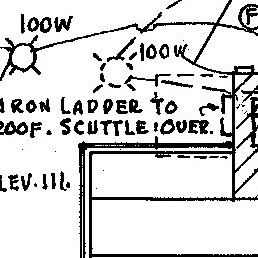 100W
F
100W
IRON LADDER TO
ROOF. SCUTTLE OVER.
LEV. 111.